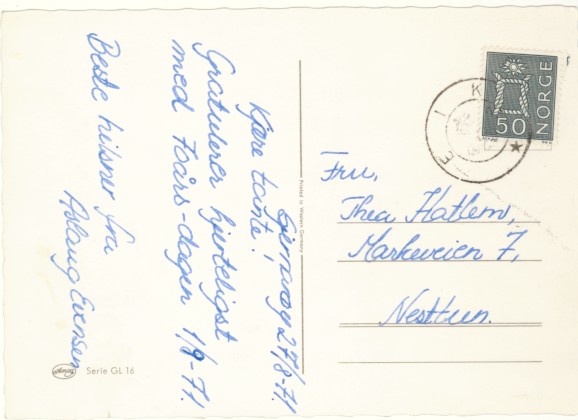 27/8-71.
Kjære tante!
Gratulerer hjerteligst
med 70års-dagen 1/9-71.
Beste hilsner fra
Aslaug Evensen
Printed in Western Germany
Serie GL 16
NORGE
50
Fru,
Thea Hatlem,
Markeveien 7,
Nesttun.